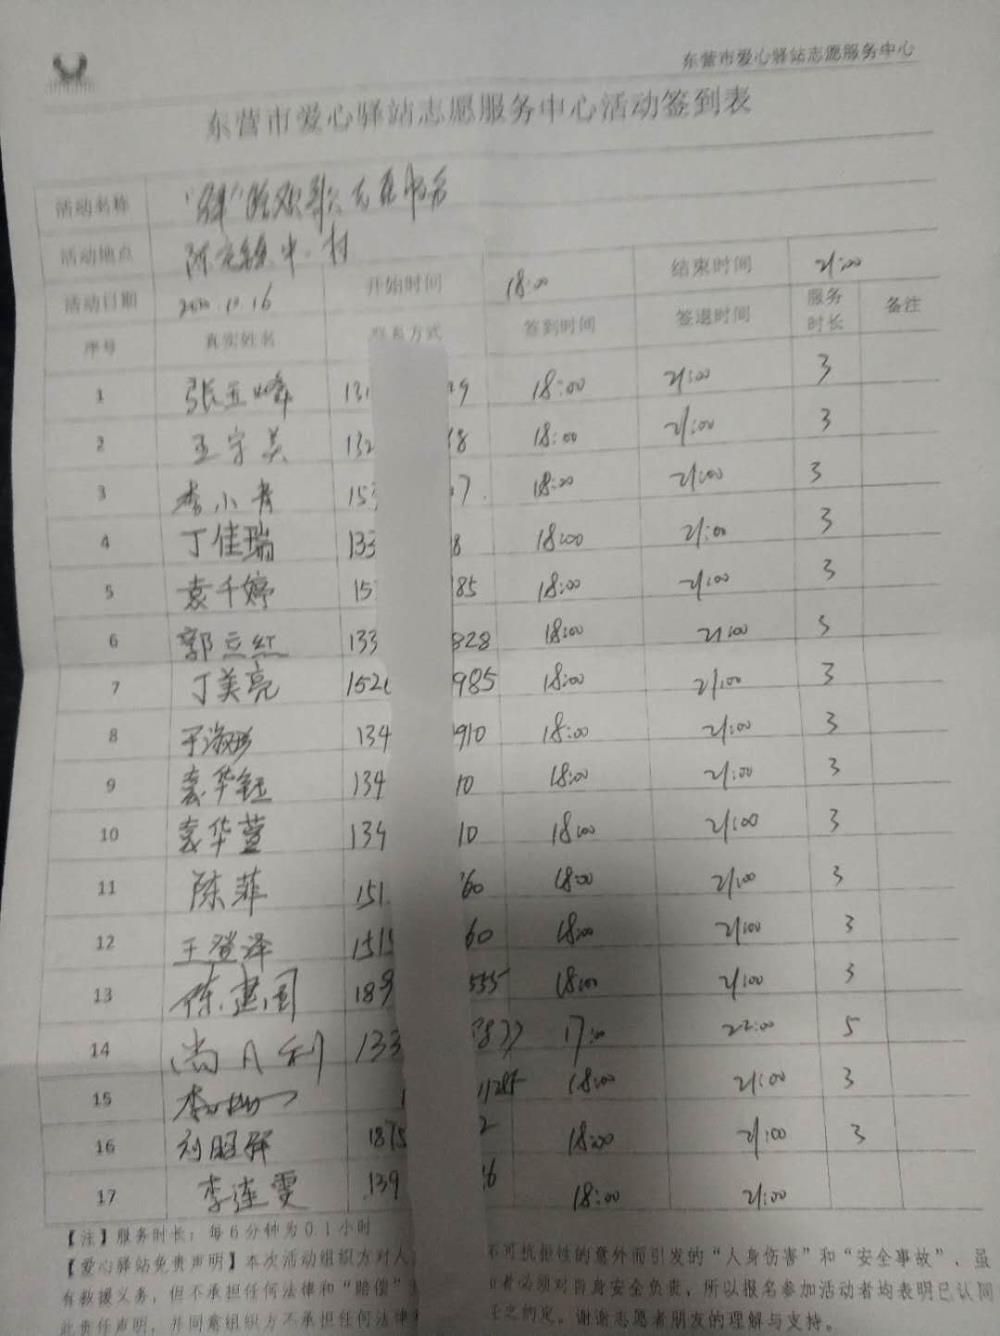 东营市爱心驿站志愿服务中心
东营市爱心驿站志愿服务中心活动签到表
活动名称 "驿"
活动地点 陈官镇中 村
活动日期 2020.10.16 开始时间 18:00 结束时间 21:00
序号 真实姓名 联系方式 签到时间 签退时间 服务时长 备注
1 张玉峰 131 9 18:00 21:00 3
2 王守美 132 18 18:00 21:00 3
3 李小青 153 7 18:00 21:00 3
4 丁佳瑞 133 8 18:00 21:00 3
5 袁千婷 15 85 18:00 21:00 3
6 郭立红 133 828 18:00 21:00 3
7 丁美亮 152 985 18:00 21:00 3
8 于淑珍 134 910 18:00 21:00 3
9 袁华钰 134 10 18:00 21:00 3
10 袁华萱 134 10 18:00 21:00 3
11 陈菲 151 60 18:00 21:00 3
12 王登泽 1515 60 18:00 21:00 3
13 陈建国 189 555 18:00 21:00 3
14 尚凡利 133 877 17:00 22:00 5
15 李 1 1285 18:00 21:00 3
16 刘昭驿 1875 2 18:00 21:00 3
17 李连雯 139 6 18:00 21:00
【注】服务时长：每6分钟为0.1小时
【爱心驿站免责声明】本次活动组织方对人 不可抗拒性的意外而引发的“人身伤害”和“安全事故”，虽
有救援义务，但不承担任何法律和“赔偿” 者必须对自身安全负责，所以报名参加活动者均表明已认同
此责任声明，并同意组织方不承担任何法律 之约定。谢谢志愿者朋友的理解与支持。